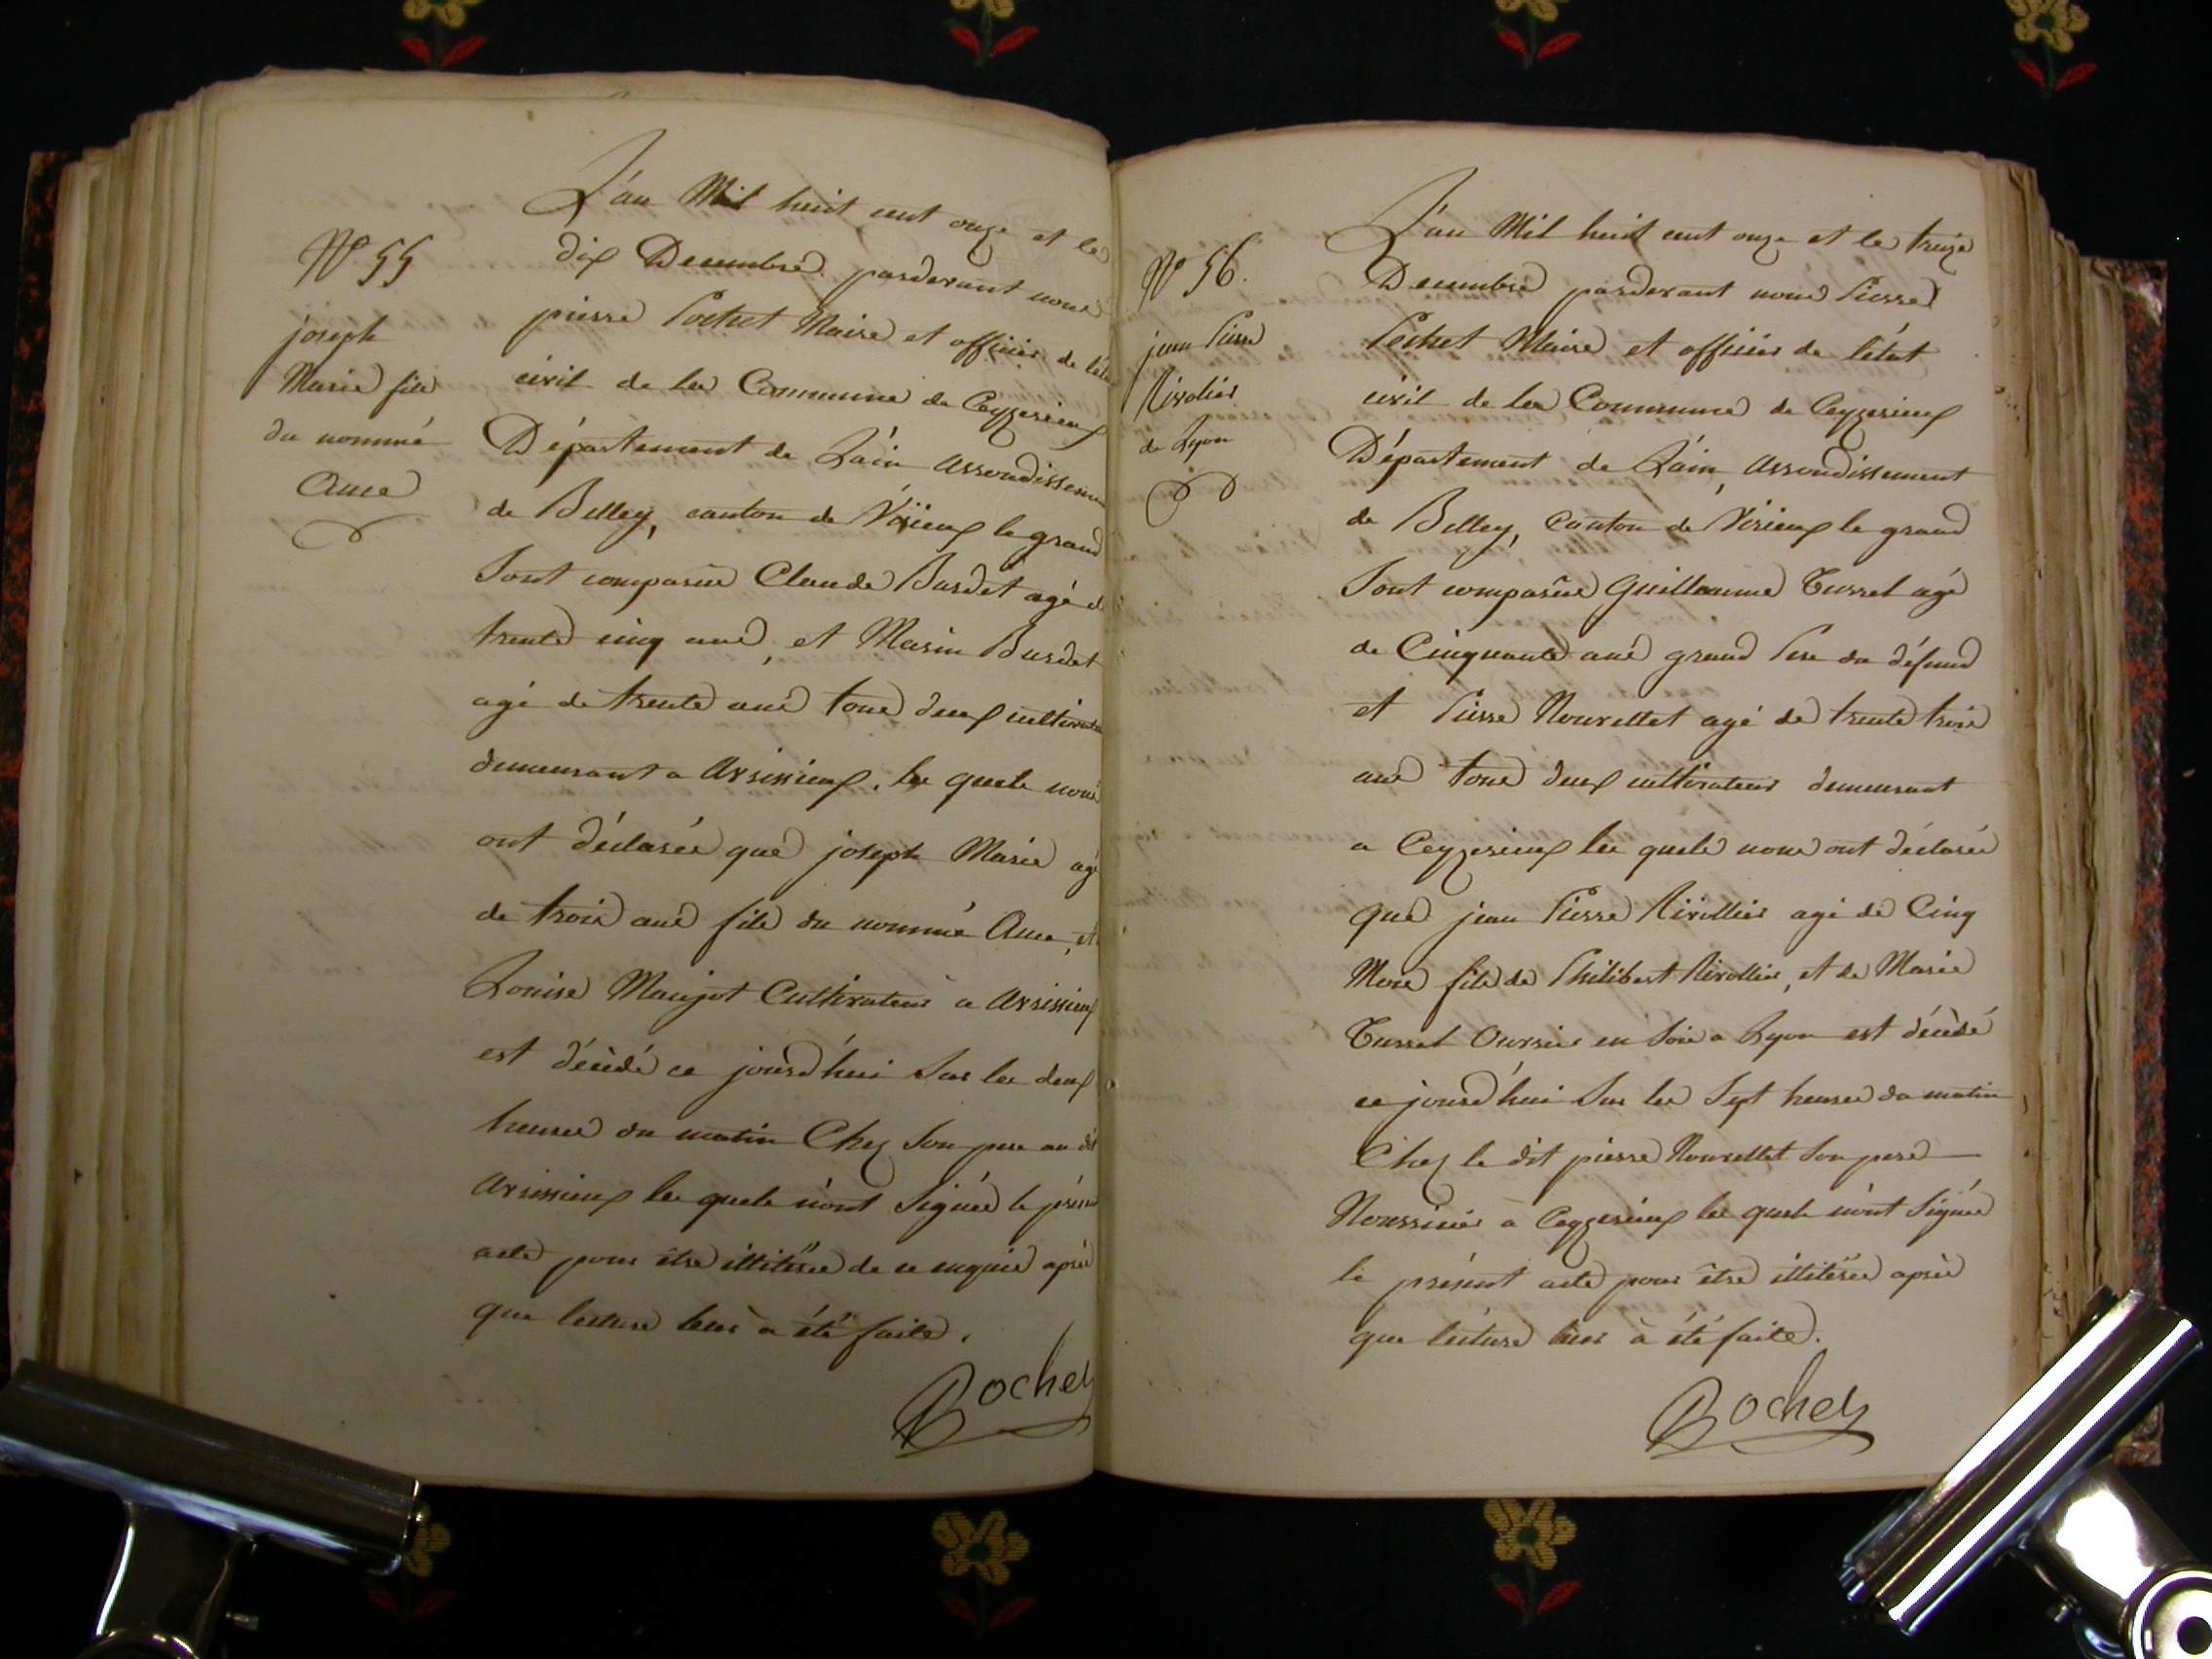 N° 55
joseph
Marie fils
du nommé
Ame
L'an Mil huit cent onze et le
dix Decembre pardevant nous
pierre Pochet Maire et officier de l'état
civil de la Commune de Ceyzerieux
Département de L'ain arrondissement
de Belley, canton de Virieux le grand
Sont comparus Claude Burdet agé de
trente cinq ans, et Marin Burdet
agé de trente ans tous deux cultivateurs
demeurant a Avrissieux, les quels nous
ont déclarés que joseph Marie agé
de trois ans fils du nommé Ame, et
Louise Maujot Cultivateurs a Avrissieux
est décédé ce jourd'hui Sur les deux
heures du matin Chez Son pere au dit
Avrissieux les quels n'ont Signés le présent
acte pour être illitérés de ce enquis après
que lecture leur à été faite.
Pochet
N° 56.
jean Pierre
Rivolier
de Lyon
L'an Mil huit cent onze et le treize
Decembre pardevant nous Pierre
Pochet Maire et officier de l'état
civil de la Commune de Ceyzerieux
Département de L'ain, arrondissement
de Belley, Canton de Virieux le grand
Sont comparus Guillaume Turrel agé
de Cinquante ans grand Pere du défund
et Pierre Nouvellet agé de trente trois
ans tous deux cultivateurs demeurant
a Ceyzerieux les quels nous ont déclarés
que jean Pierre Rivollier agé de Cinq
Mois fils de Philibert Rivollier, et de Marie
Turrel Ouvrier en Soie a Lyon est décédé
ce jourd'hui Sur les Sept heures du matin
Chez le dit pierre Nouvellet Son pere
Nourricier à Ceyzerieux les quels n'ont Signés
le présent acte pour être illitérés après
que lecture leur à été faite.
Pochet